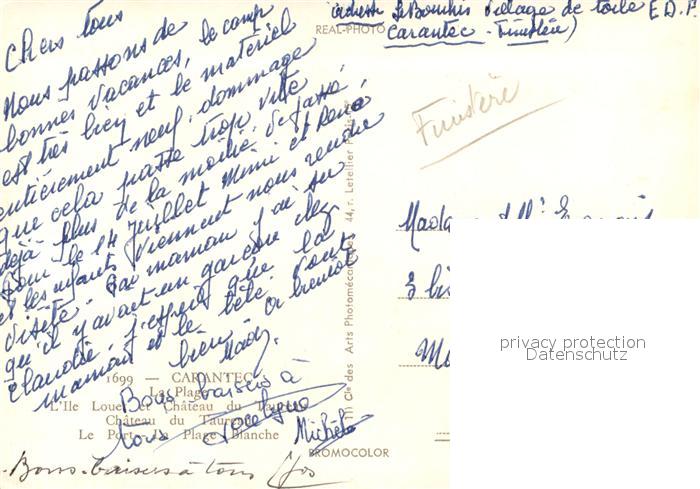 adresse Le Bourhis Village de toile E.D.F
REAL-PHOTO
Carantec - Finistère)
Finistère
Chers tous
Nous passons de
bonnes vacances, le camp
est très bien et le matériel
entièrement neuf. dommage
que cela passe trop vite,
déjà plus de la moitié de passé.
Pour le 14 juillet Mimi et René
et les enfants viennent nous rendre
visite. Par maman j'ai su
qu'il y avait un garçon chez
Claudie, j'espère que la
maman et le bébé vont
bien. A bientôt
Mady.
1699 — CARANTEC
La Plage
L'Ile Louet et Château du Taureau
Château du Taureau
Le Port, la Plage Blanche
Bons baisers à
tous Jocelyne
Michèle
-Bons-baisers à tous
BROMOCOLOR
Cie des Arts Photomécaniques 44, r. Letellier Paris
Madame
3 bis
privacy protection
Datenschutz